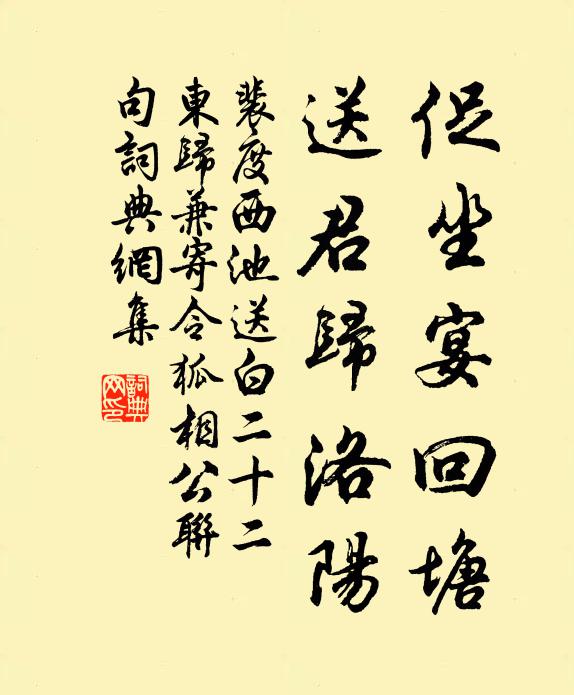 促坐宴回塘
送君歸洛陽
裴度西池送白二十二
東歸兼寄令狐相公聯
句詞典網集
詞典
网印